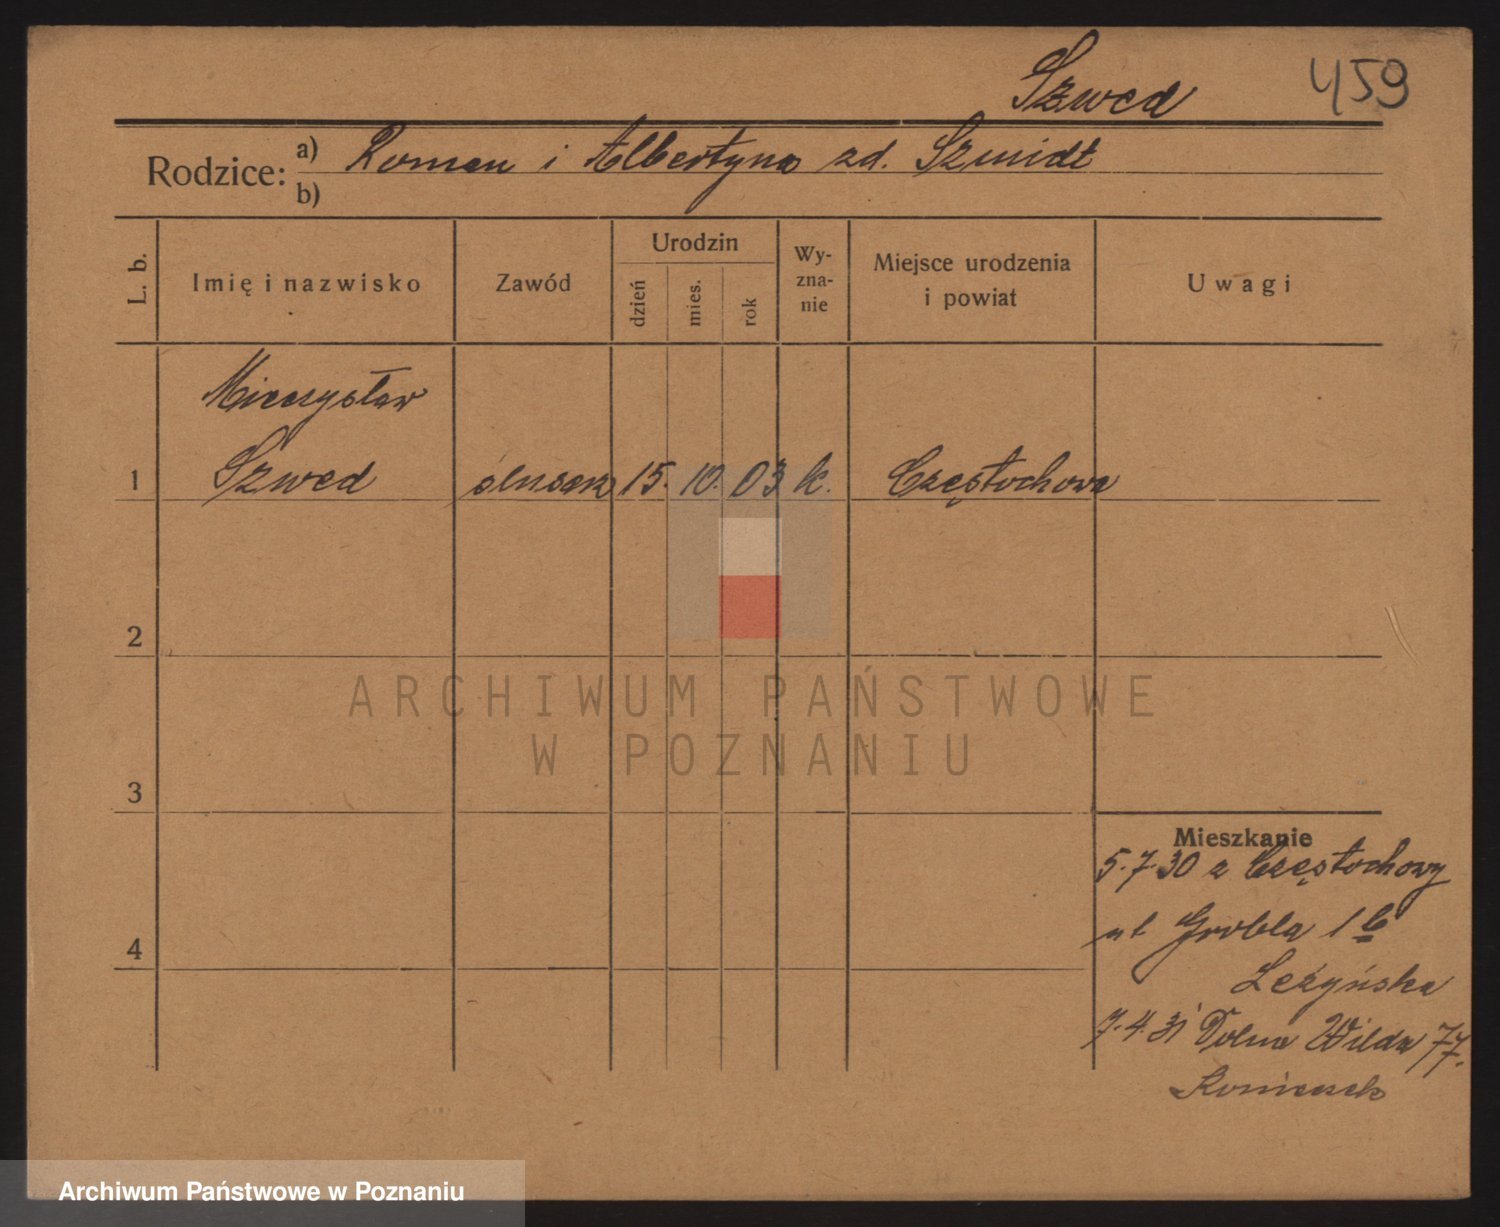 Szwed 459
Rodzice: a) Roman i Albertyna zd. Szmidt
b)
L. b. Imię i nazwisko Zawód Urodzin dzień mies. rok Wyznanie Miejsce urodzenia i powiat Uwagi
Mieczysław
1 Szwed ślusarz 15. 10. 03 k. Częstochowa
2
ARCHIWUM PAŃSTWOWE
W POZNANIU
3
Mieszkanie
5.7.30 z Częstochowy
ul Grobla 1 b
4
Leżyńska
7.4.31 Dolna Wilda 77.
Archiwum Państwowe w Poznaniu